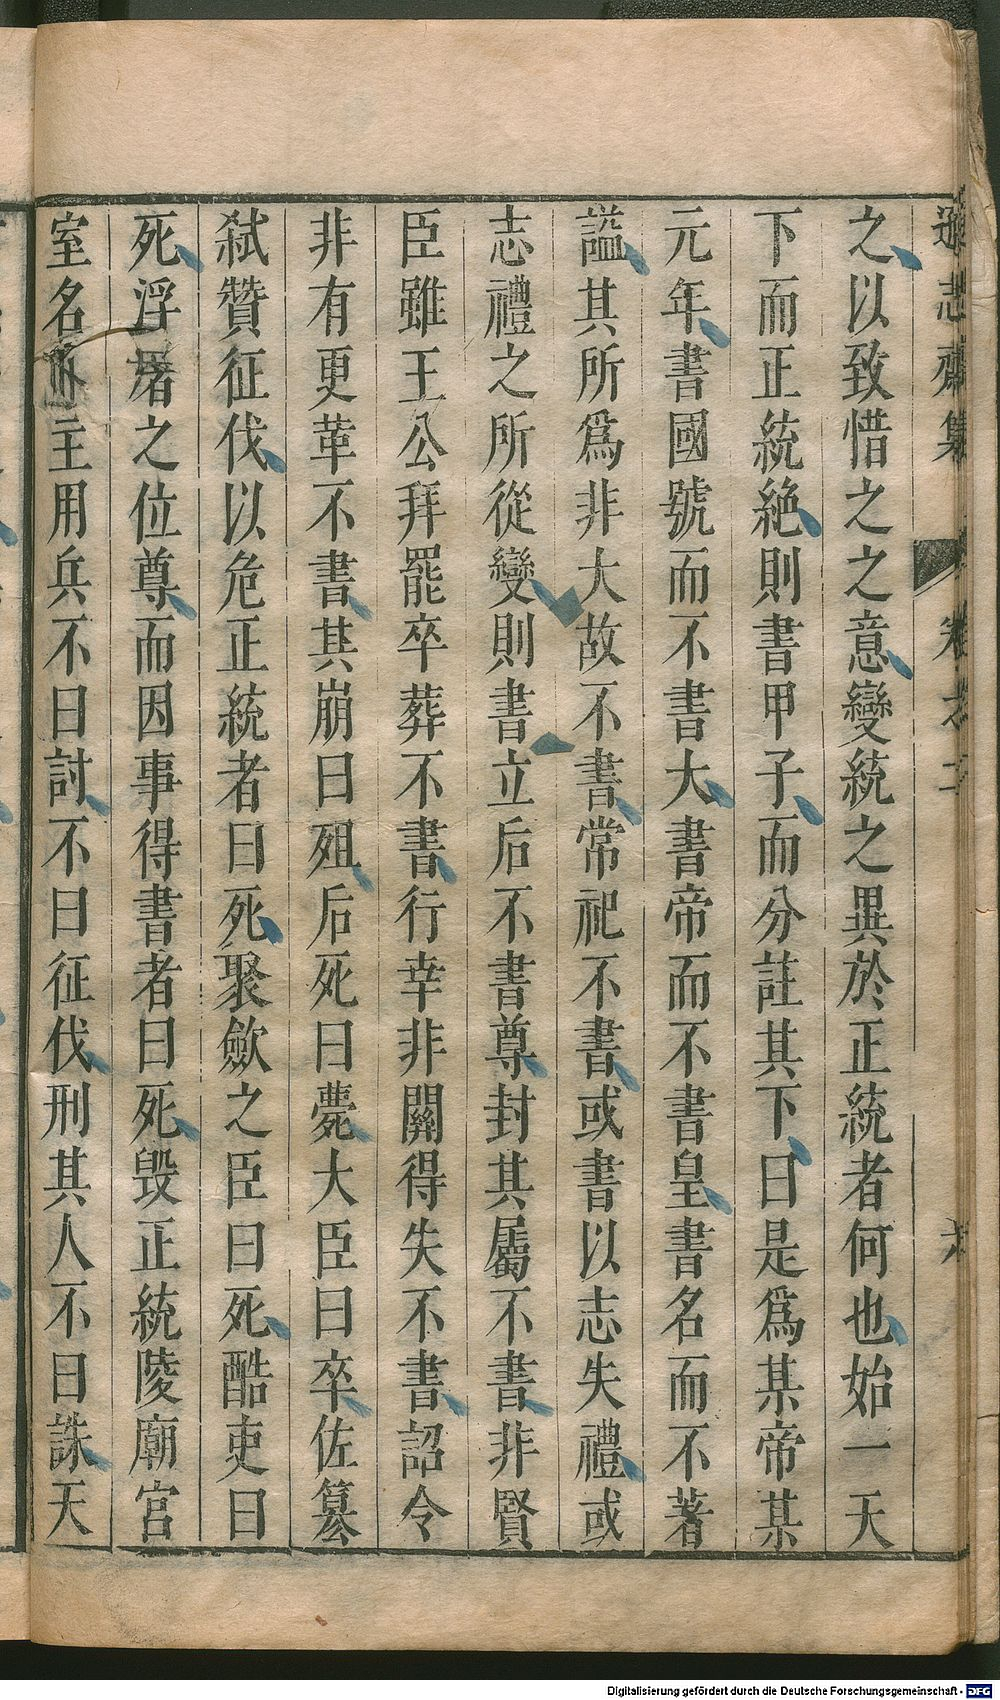 遜志齋集 卷之二 六
之以致惜之之意變統之異於正統者何也始一天
下而正統絶則書甲子而分註其下曰是爲某帝某
元年書國號而不書大書帝而不書皇書名而不著
謚其所爲非大故不書常祀不書或書以志失禮或
志禮之所從變則書立后不書尊封其屬不書非賢
臣雖王公拜罷卒葬不書行幸非關得失不書詔令
非有更革不書其崩曰殂后死曰薨大臣曰卒佐篡
弑贊征伐以危正統者曰死聚歛之臣曰死酷吏曰
死浮屠之位尊而因事得書者曰死毁正統陵廟宮
室名其主用兵不曰討不曰征伐刑其人不曰誅天
Digitalisierung gefördert durch die Deutsche Forschungsgemeinschaft - DFG